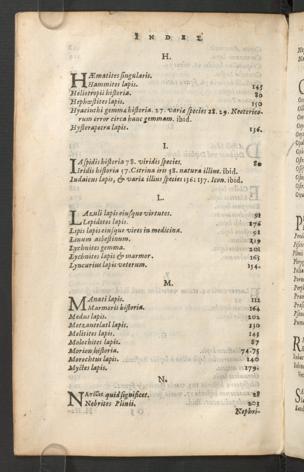 INDEX
H.
HÆmatites singularis.
Hammites lapis. 145
Heliotropii historia. 80
Hephæstites lapis. 150
Hyacinthi gemma historia. 27. varia species 28. 29. Neoterico-
rum error circa hanc gemmam. ibid.
Hysterapetra lapis. 136.
I.
IAspidis historia 78. viridis species. 80
Iridis historia 57. Citrina iris 58. natura illius. ibid.
Iudaicus lapis, & varia illius species 136. 137. Icon. ibid.
L.
LAzuli lapis eiusque virtutes. 92
Lepidotes lapis. 176
Lipis lapis eiusque vires in medicina. 91
Linum asbestinum. 219
Lychnites gemma. 201
Lychnites lapis & marmor. 163
Lyncurius lapis veterum. 154.
M.
MAnati lapis. 112
Marmoris historia. 164
Medus lapis. 202
Melitites lapis. 145
Molochites lapis. 87
Morion historia. 74.75
Morochtus lapis. 140
Myites lapis. 179.
N.
quid significet. 28
Nebrites Plinii. 203
Nephri-